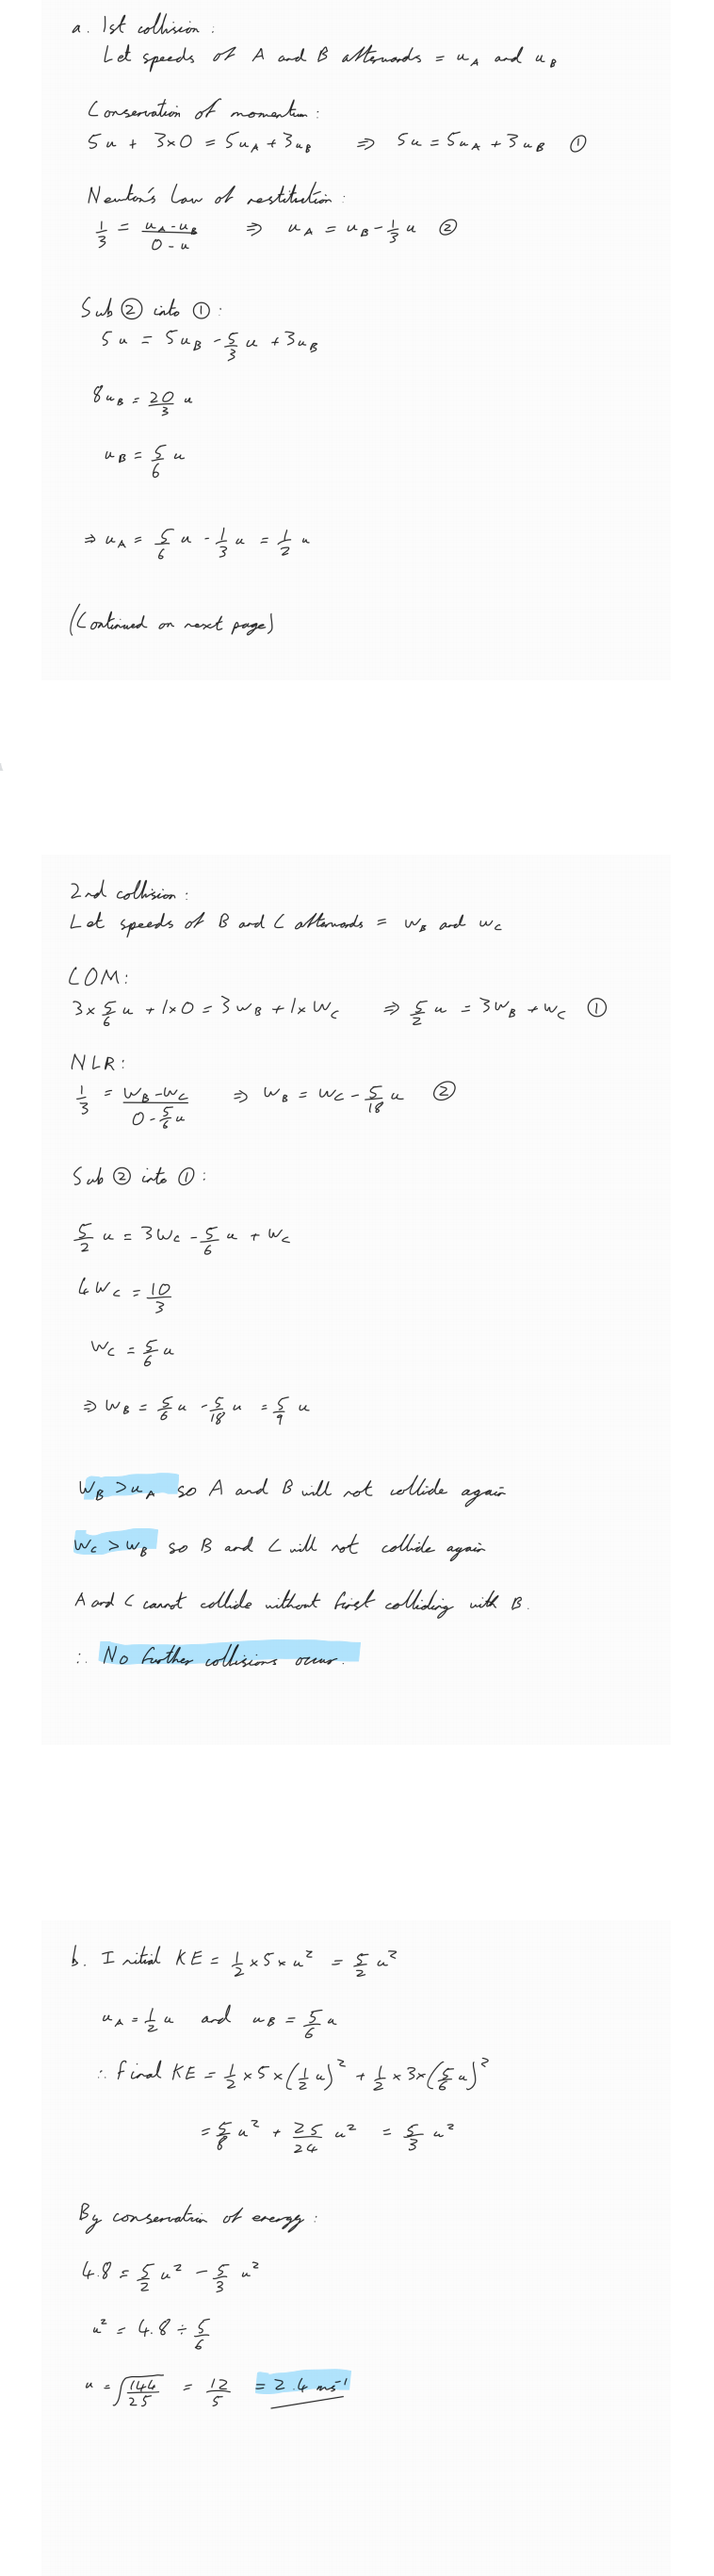 a. 1st collision :
Let speeds of A and B afterwards = u_A and u_B
Conservation of momentum :
5u + 3×0 = 5u_A + 3u_B ⇒ 5u = 5u_A + 3u_B ①
Newton's Law of restitution :
1/3 = (u_A - u_B)/(0 - u) ⇒ u_A = u_B - 1/3 u ②
Sub ② into ① :
5u = 5u_B - 5/3 u + 3u_B
8u_B = 20/3 u
u_B = 5/6 u
⇒ u_A = 5/6 u - 1/3 u = 1/2 u
(Continued on next page)
2nd collision :
Let speeds of B and C afterwards = w_B and w_C
COM:
3 × 5/6 u + 1×0 = 3w_B + 1×w_C ⇒ 5/2 u = 3w_B + w_C ①
NLR:
1/3 = (w_B - w_C)/(0 - 5/6 u) ⇒ w_B = w_C - 5/18 u ②
Sub ② into ① :
5/2 u = 3w_C - 5/6 u + w_C
4w_C = 10/3
w_C = 5/6 u
⇒ w_B = 5/6 u - 5/18 u = 5/9 u
w_B > u_A so A and B will not collide again
w_C > w_B so B and C will not collide again
A and C cannot collide without first colliding with B.
∴ No further collisions occur.
b. Initial KE = 1/2 × 5 × u² = 5/2 u²
u_A = 1/2 u and u_B = 5/6 u
∴ final KE = 1/2 × 5 × (1/2 u)² + 1/2 × 3 × (5/6 u)²
= 5/8 u² + 25/24 u² = 5/3 u²
By conservation of energy :
4.8 = 5/2 u² - 5/3 u²
u² = 4.8 ÷ 5/6
u = √(144/25) = 12/5 = 2.4 ms⁻¹